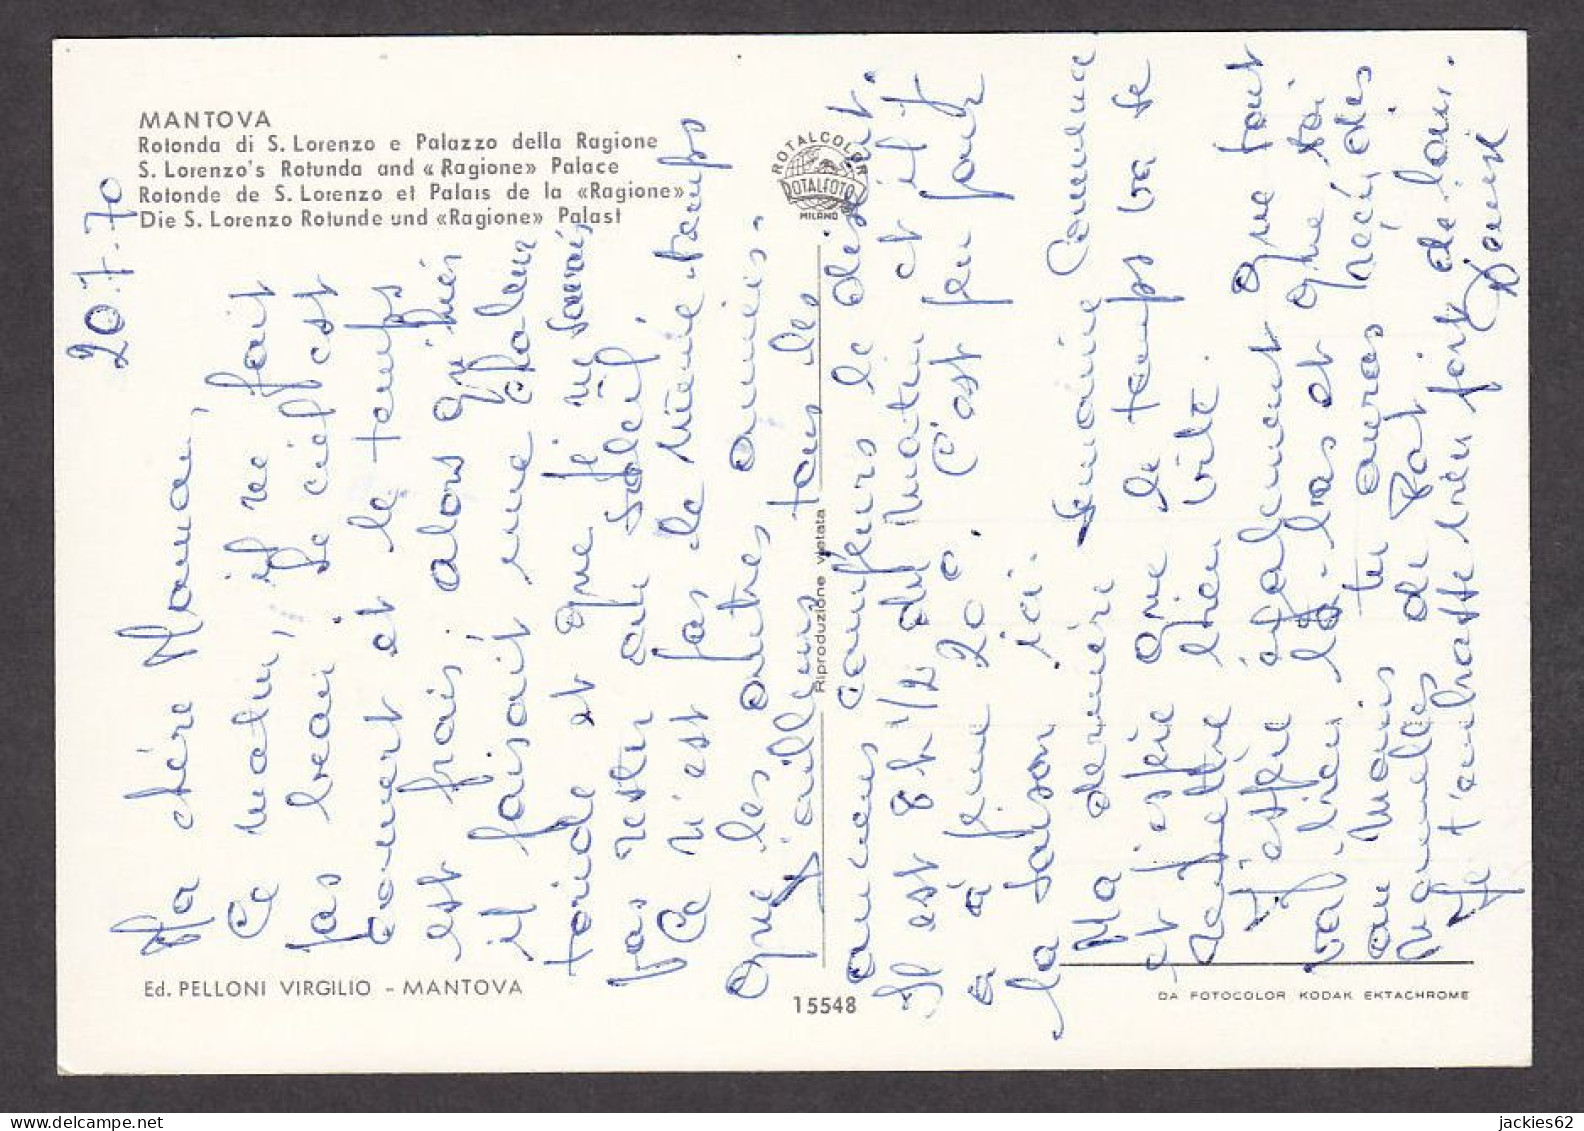 MANTOVA
Rotonda di S. Lorenzo e Palazzo della Ragione
S. Lorenzo's Rotunda and «Ragione» Palace
Rotonde de S. Lorenzo et Palais de la «Ragione»
Die S. Lorenzo Rotunde und «Ragione» Palast
ROTALCOLOR
ROTALFOTO
MILANO
20.7.70
Ma chère Maman,
Ce matin, il ne fait
pas beau, le ciel est
couvert et le temps
est frais, alors qu'hier
il faisait une chaleur
torride et que je ne savais
pas rester au soleil.
Ce n'est pas le même temps
que les autres années.
D'ailleurs tous les
anciens campeurs le disent.
Il est 8h 1/2 du matin et il y
a à peine 20°. C'est peu pour
la saison ici.
Ma dernière semaine commence
et j'espère que le temps va se
remettre bien vite.
J'espère également que tout
va bien là-bas et que toi
au moins tu auras reçu des
nouvelles de Pat
Je t'embrasse bien fort de loin.
Denise
Riproduzione vietata
Ed. PELLONI VIRGILIO - MANTOVA
15548
DA FOTOCOLOR KODAK EKTACHROME
jackies62